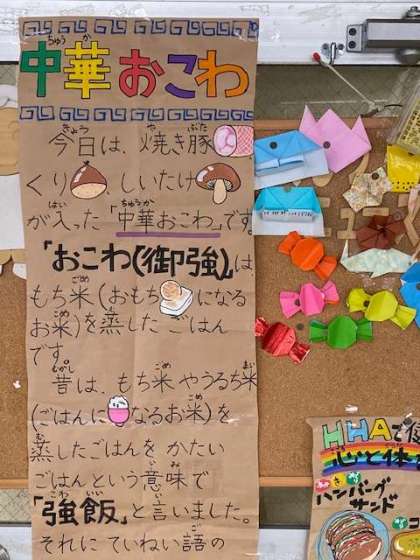 中華おこわ
今日は、焼き豚
くり しいたけ
が入った「中華おこわ」です。
「おこわ(御強)」は、
もち米(おもち になる
お米)を蒸した ごはん
です。
昔は、もち米やうるち米
(ごはんに なるお米)を
蒸したごはんを かたい
ごはんという意味で
「強飯」と言いました。
それにていねい語の
HHAで
心と体
ハンバーグ
サンド